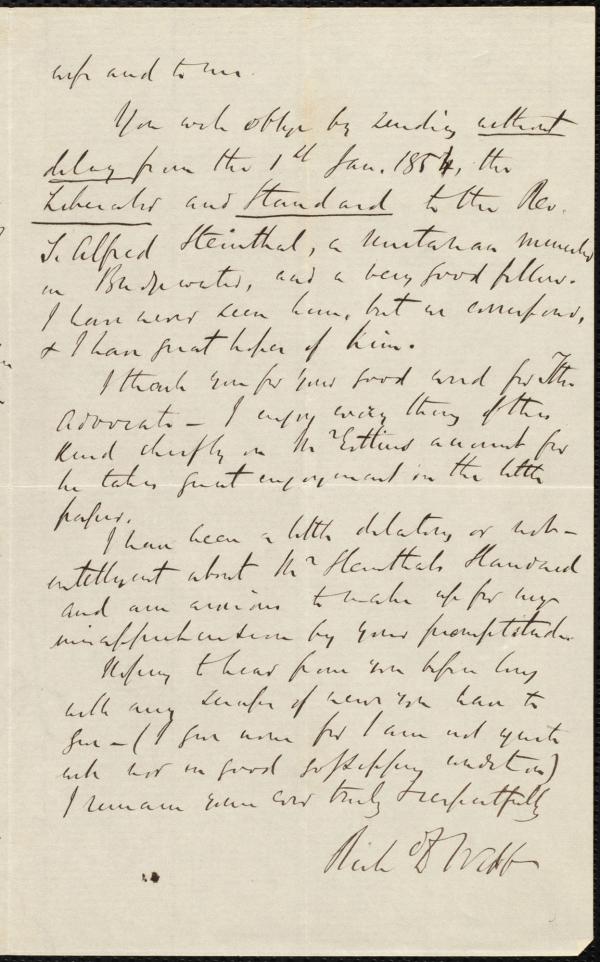 wife and to me.
You will oblige by sending without
delay from the 1st Jan. 1854, the
Liberator and Standard to the Rev.
S. Alfred Steinthal, a Unitarian minister
in Bridgwater, and a very good fellow.
I have never seen him, but we correspond,
& I have great hopes of him.
I thank you for your good word for The
Advocate – I enjoy every thing of this
kind chiefly on Mr Estlin's account for
he takes great enjoyment in the little
paper.
I have been a little dilatory or not-
intelligent about Mr Steinthal's Standard
and am anxious to make up for my
misapprehension by your promptitude.
Hoping to hear from you before long
with any scraps of news you have to
give – (I give none for I am not quite
well nor in good gossipping condition)
I remain yours ever truly & respectfully
Richd D Webb